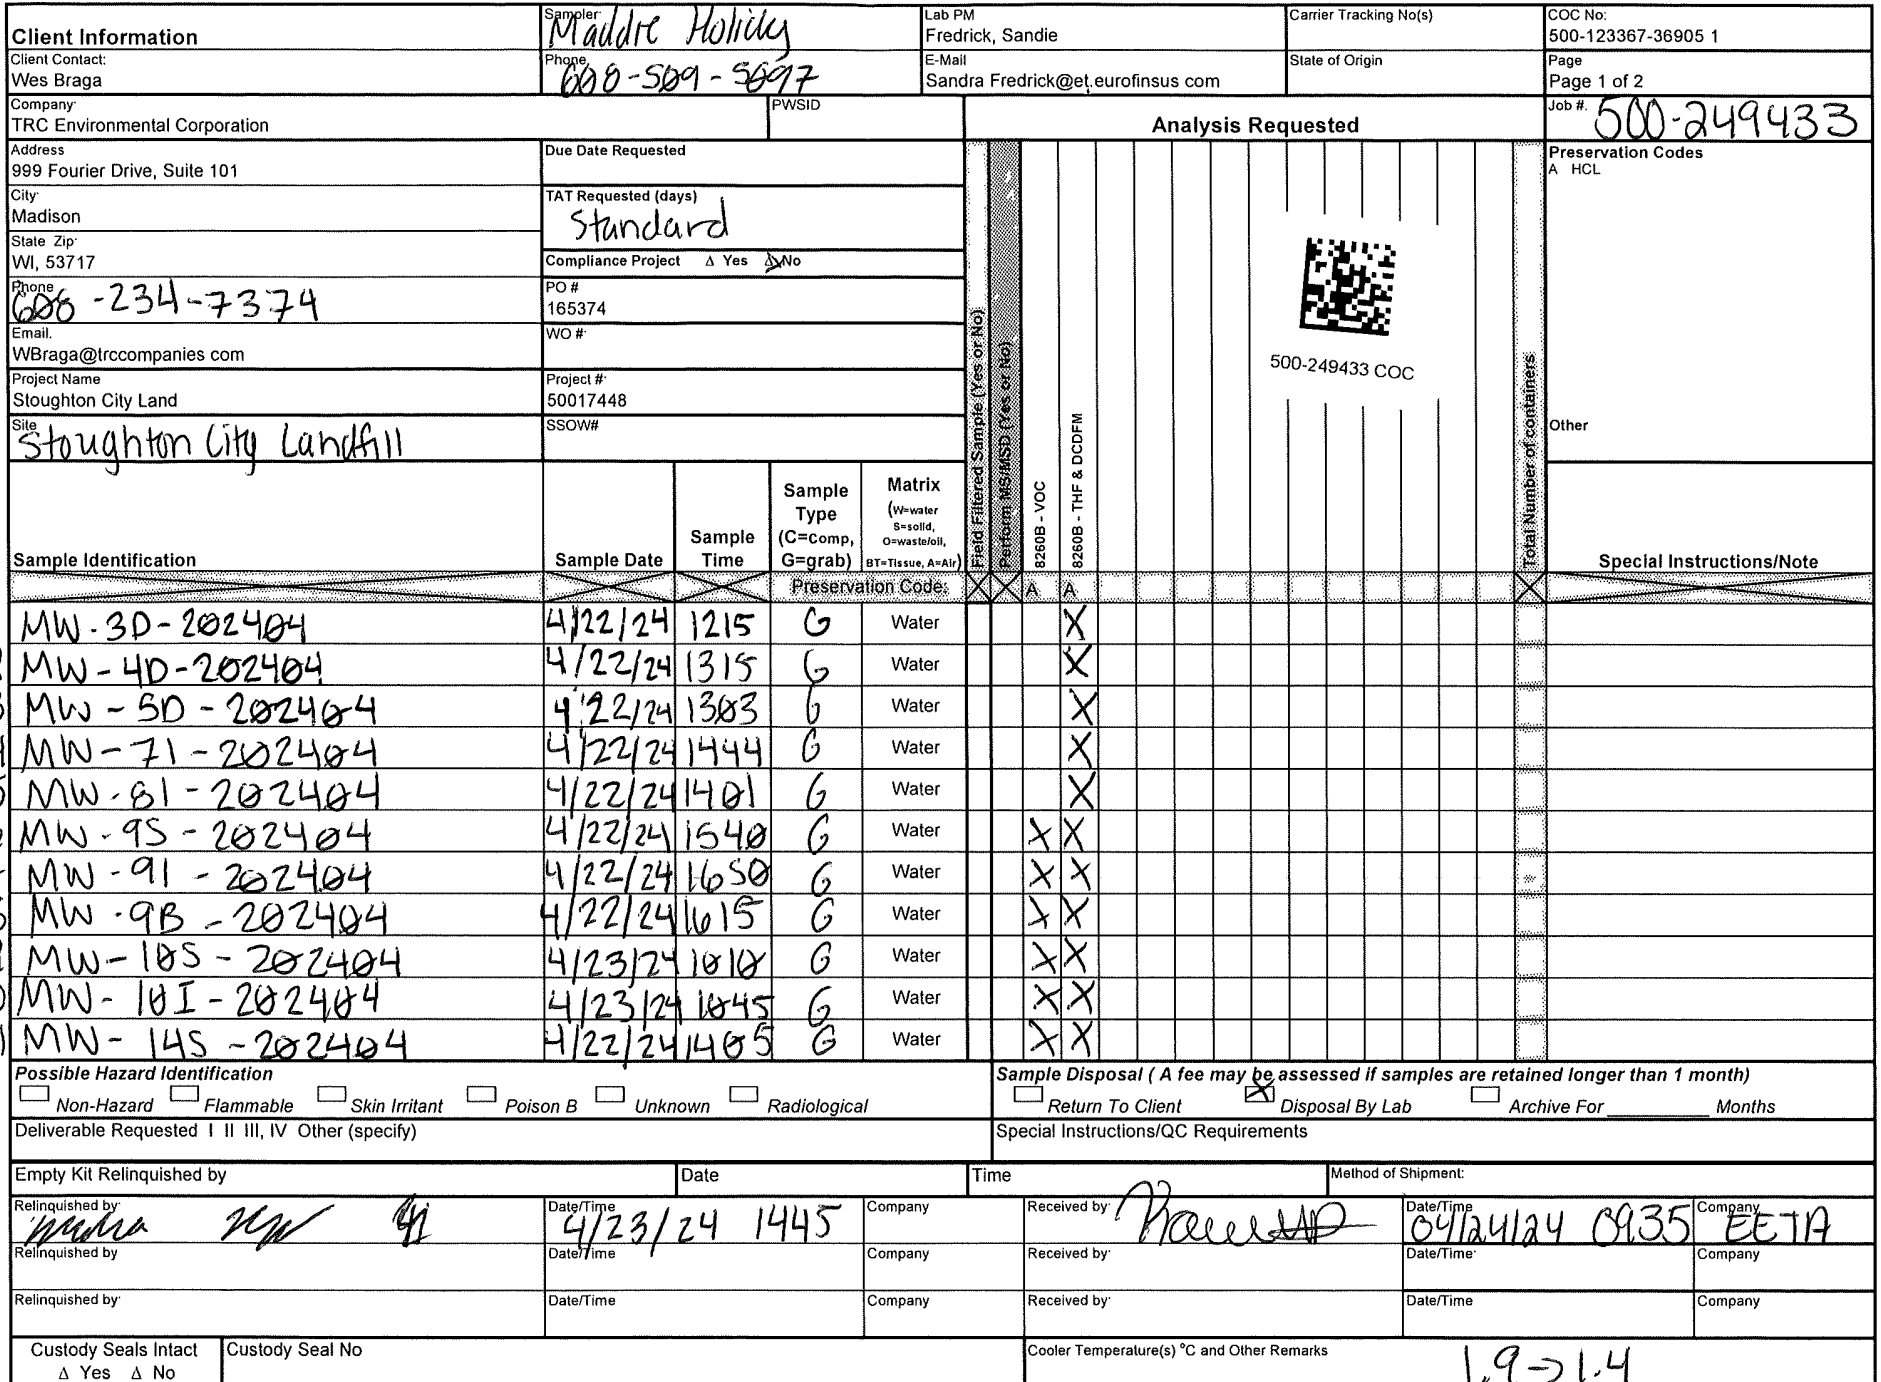 Client Information
Sampler
Maddie Holicky
Lab PM
Fredrick, Sandie
Carrier Tracking No(s)
COC No:
500-123367-36905 1
Client Contact:
Wes Braga
Phone
608-509-5097
E-Mail
Sandra Fredrick@et.eurofinsus com
State of Origin
Page
Page 1 of 2
Company
TRC Environmental Corporation
PWSID
Analysis Requested
Job #.
500-249433
Address
999 Fourier Drive, Suite 101
Due Date Requested
Preservation Codes
A HCL
City
Madison
TAT Requested (days)
Standard
State Zip
WI, 53717
Compliance Project Δ Yes Δ No
Phone
608-234-7374
PO #
165374
Email.
WBraga@trccompanies com
WO #
500-249433 COC
Project Name
Stoughton City Land
Project #
50017448
Site
Stoughton City Landfill
SSOW#
Other
Sample Identification
Sample Date
Sample
Time
Sample
Type
(C=comp,
G=grab)
Matrix
(W=water
S=solid,
O=waste/oil,
BT=Tissue, A=Air)
Field Filtered Sample (Yes or No)
Perform MS/MSD (Yes or No)
8260B - VOC
8260B - THF & DCDFM
Total Number of containers
Special Instructions/Note
Preservation Code: X X A A X
MW-3D-202404 4/22/24 1215 G Water X
MW-4D-202404 4/22/24 1315 G Water X
MW-5D-202404 4/22/24 1303 G Water X
MW-7I-202404 4/22/24 1444 G Water X
MW-8I-202404 4/22/24 1401 G Water X
MW-9S-202404 4/22/24 1540 G Water X X
MW-9I-202404 4/22/24 1650 G Water X X
MW-9B-202404 4/22/24 1615 G Water X X
MW-10S-202404 4/23/24 1010 G Water X X
MW-10I-202404 4/23/24 1045 G Water X X
MW-14S-202404 4/22/24 1405 G Water X X
Possible Hazard Identification
Non-Hazard Flammable Skin Irritant Poison B Unknown Radiological
Sample Disposal ( A fee may be assessed if samples are retained longer than 1 month)
Return To Client X Disposal By Lab Archive For Months
Deliverable Requested I II III, IV Other (specify)
Special Instructions/QC Requirements
Empty Kit Relinquished by
Date
Time
Method of Shipment:
Relinquished by
Date/Time
4/23/24 1445
Company
Received by
Date/Time
04/24/24 0935
Company
EETA
Relinquished by
Date/Time
Company
Received by
Date/Time
Company
Relinquished by
Date/Time
Company
Received by
Date/Time
Company
Custody Seals Intact
Δ Yes Δ No
Custody Seal No
Cooler Temperature(s) °C and Other Remarks
1.9→1.4